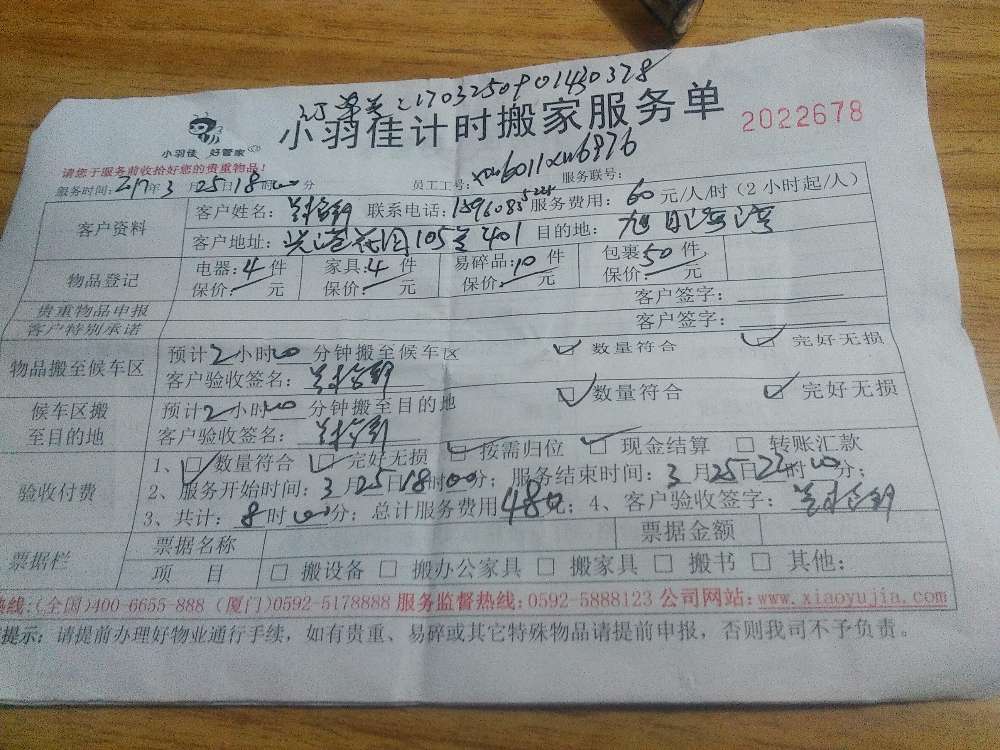 1703250901430378
小羽佳计时搬家服务单
2022678
小羽佳 好管家
请您于服务前收拾好您的贵重物品!
服务时间: 年3月25日18时00分 员工工号: xm6011xm6876 服务联号:
客户资料 客户姓名: 联系电话: 服务费用: 60元/人/时(2小时起/人)
客户地址: 105 401 目的地: 旭日海湾
物品登记 电器:4件 家具:4件 易碎品:10件 包裹50件
保价: 元 保价: 元 保价: 元 保价: 元
贵重物品申报 客户签字:
客户特别承诺 客户签字:
物品搬至候车区 预计2小时00分钟搬至候车区 数量符合 完好无损
客户验收签名:
候车区搬至目的地 预计2小时00分钟搬至目的地 数量符合 完好无损
客户验收签名:
验收付费 1、数量符合 完好无损 按需归位 现金结算 转账汇款
2、服务开始时间:3月25日18时00分; 服务结束时间:3月25日22时00分;
3、共计:8时00分; 总计服务费用480元; 4、客户验收签字:
票据栏 票据名称 票据金额
项 目 搬设备 搬办公家具 搬家具 搬书 其他:
热线:(全国)400-6655-888 (厦门)0592-5178888 服务监督热线:0592-5888123 公司网站:www.xiaoyujia.com
提示: 请提前办理好物业通行手续, 如有贵重、易碎或其它特殊物品请提前申报, 否则我司不予负责。